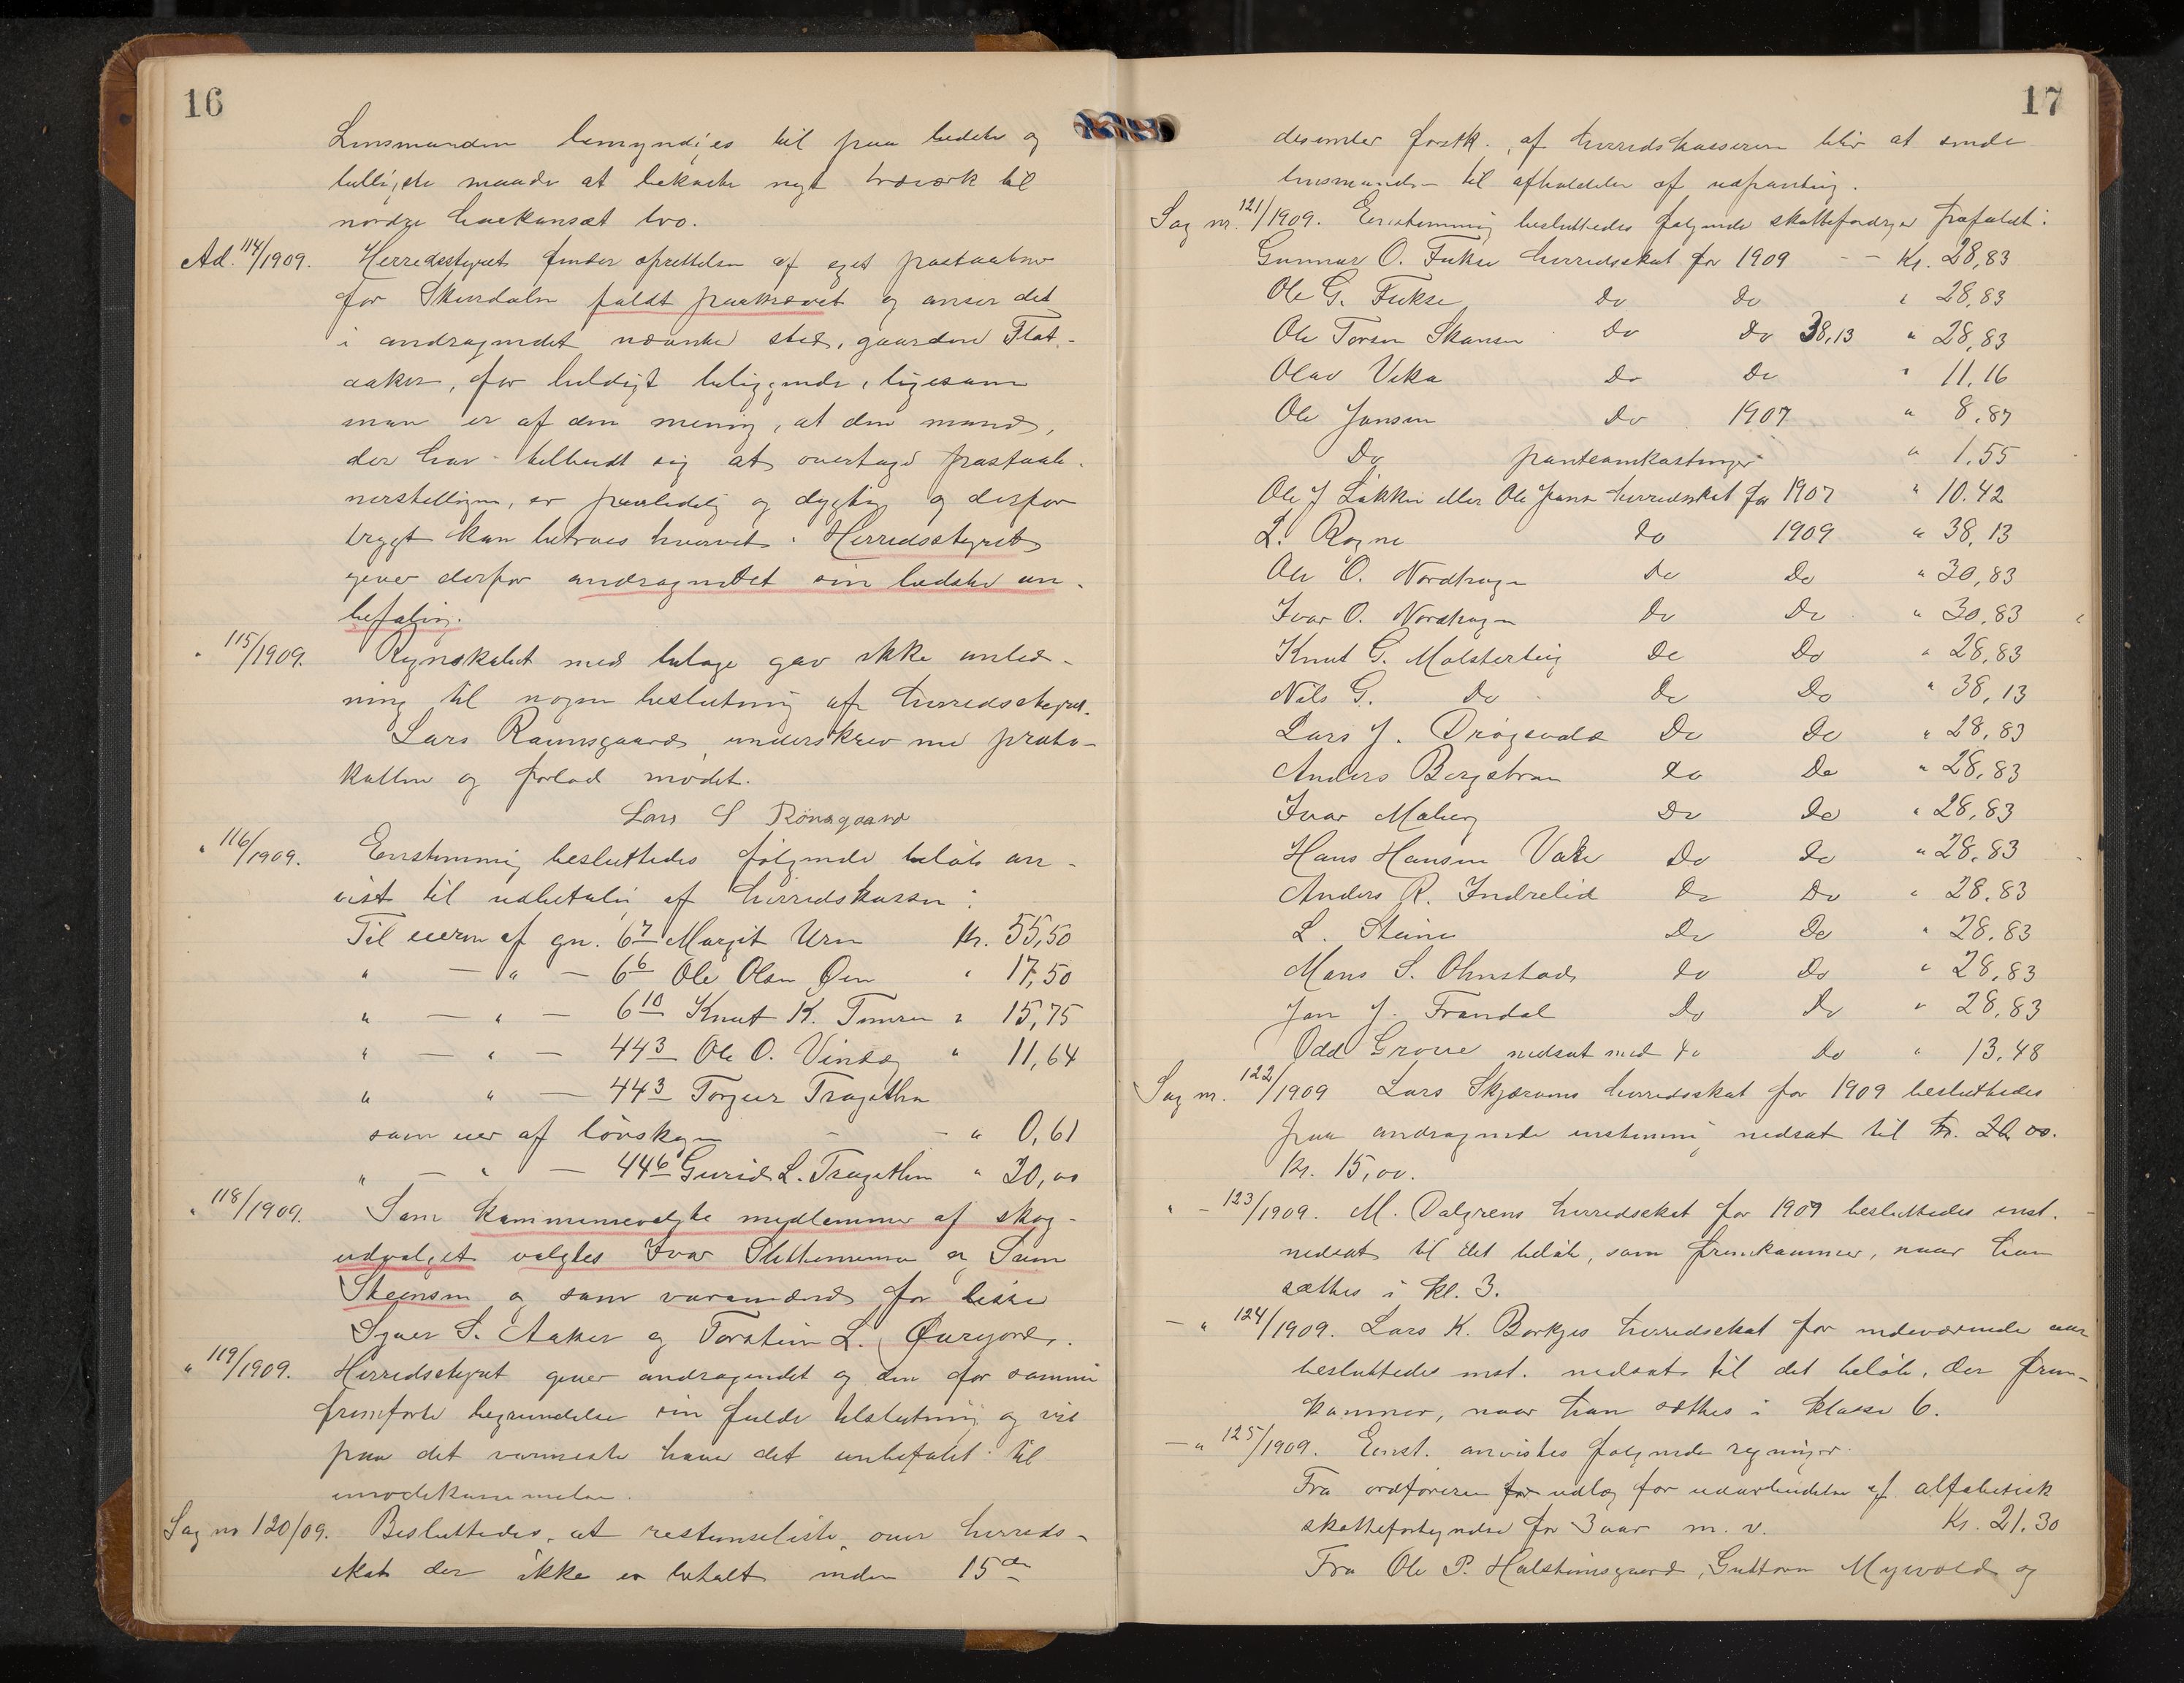 16
Lensmanden bemyndiges til paa bedste og
billigste maade at bekoste nyt træværk til
nordre
Ad. 114/1909. Herredsstyret finder oprettelsen af eget postaabneri
for Skurdalen fuldt paakrævet og anser det
i andragendet nævnte sted, gaarden Flat-
aaker, for heldigt beliggende, ligesom
man er af den mening, at den mand,
der har tilbudt sig at overtage postaab-
nerstillingen, er paalidelig og dygtig og derfor
trygt kan betroes hvervet. Herredsstyret
giver derfor andragendet sin bedste an-
befaling.
" 115/1909. Regnskabet med bilage gav ikke anled-
ning til nogen beslutning af herredsstyret.
Lars Rønnsgaard underskrev nu proto-
kollen og forlod mødet.
Lars S Rönsgaard
" 116/1909. Enstemmig besluttedes følgende beløb an-
vist til udbetaling af herredskassen:
Til eieren af gn. 6 7 Margit Uren Kr. 55,50
" — " — 6 6 Ole Olsen Øen " 17,50
" — " — 6 10 Knut K. Tnnren " 15,75
" — " — 44 3 Ole O. " 11,64
" " — 44 3 Torgeir Tragethon
som eier af løvskogen - - " 0,61
" — " — 44 6 Gurid L. Tragethon " 20,00
" 118/1909. Som kommunevalgte medlemmer af skog-
udvalget valgtes Ivar Slettemoen og Sven
Skeensen og som varamænd for disse
Syver S. Aaker og Torstein L. Øvregord.
" 119/1909. Herredsstyret giver andragendet og den for samme
fremførte begrundelse sin fulde tilslutning og vil
paa det varmeste have det anbefalet til
imødekommelse.
Sag no 120/09. Besluttedes, at restanseliste over herreds-
skat der ikke er betalt inden 15de
17
desember førstk., af herredskasseren blir at sende
lensmanden til afholdelse af udpanting.
Sag nr. 121/1909. Enstemmig besluttedes følgende skattefordringer frafaldt:
Gunnar O. Fukse herredsskat for 1909 - - Kr. 28,83
Ole G. Fukse do do " 28,83
Ole Torsen Skansen do do 38,13 " 28,83
Olav Veka do do " 11,16
Ole Jansen do 1907 " 8,87
Do panteomkostninger " 1,55
Ole J Løkken eller Ole Jansen herredsskat for 1907 " 10.42
L. Rogne do 1909 " 38,13
Ole O. Nordhagen do do " 30,83
Ivar O. Nordhagen do do " 30,83
Knut G. Molsterteig do do " 28,83
Nils G. do do do " 38,13
Lars J. Drøgsvold do do " 28,83
Anders Bergstrøm do do " 28,83
Ivar Moberg do do " 28,83
Hans Hansen Vake do do " 28,83
Anders R. Indrelid do do " 28,83
L. Steine do do " 28,83
Mons S. Ohnstad do do " 28,83
Jon J. Frondal do do " 28,83
Odd Grove nedsat med do do " 13,48
Sag nr. 122/1909 Lars Skjerums herredsskat for 1909 besluttedes
paa andragende enstemmig nedsat til kr. 20 00.
Kr. 15,00.
" - 123/1909. M. Dalgrens herredsskat for 1909 besluttedes enst.
nedsat til det beløb, som fremkommer, naar han
sættes i kl. 3.
— " 124/1909. Lars K. Borkjes herredsskat for indeværende aar
besluttedes enst. nedsat til det beløb, der frem-
kommer, naar han sættes i klasse 6.
— " 125/1909. Enst. anvistes følgende regninger.
Fra ordføreren for udlæg for udarbeidelse af alfabetisk
skattefortegnelse for 3 aar m. v. Kr. 21.30
Fra Ole P. Halsteinsgaard, Guttorm Myrvold og